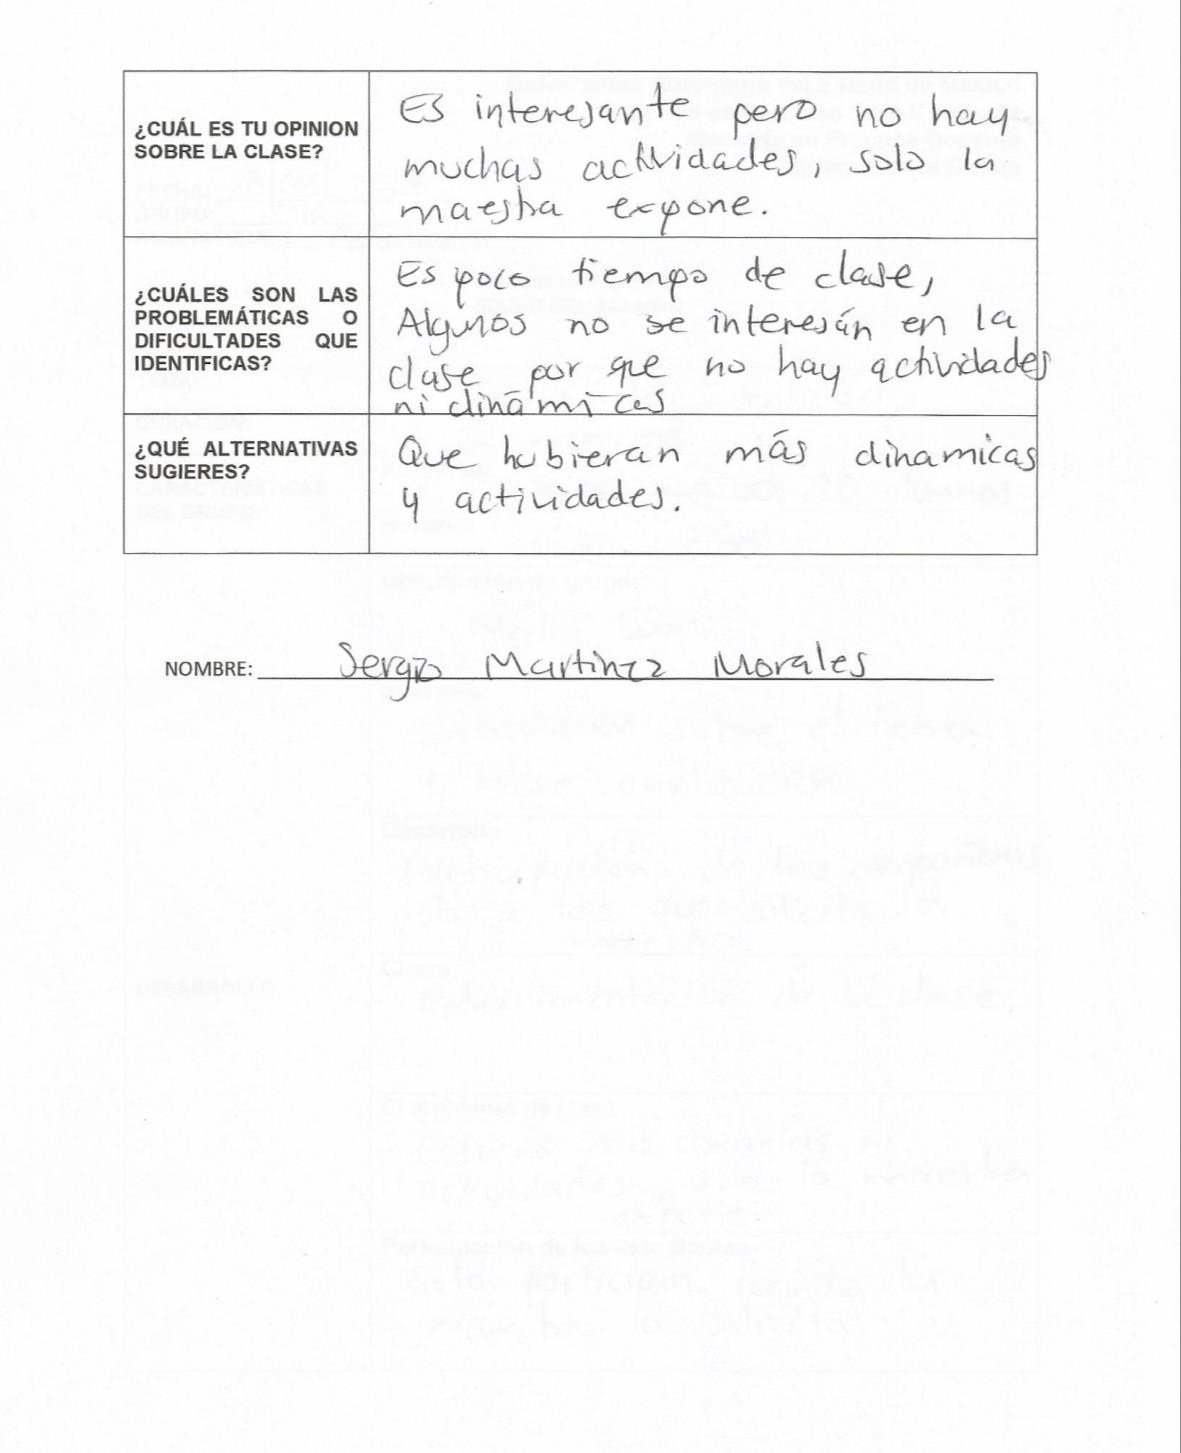 ¿CUÁL ES TU OPINION
SOBRE LA CLASE?
Es interesante pero no hay
muchas actividades, solo la
maestra expone.
¿CUÁLES SON LAS
PROBLEMÁTICAS O
DIFICULTADES QUE
IDENTIFICAS?
Es poco tiempo de clase,
Algunos no se interesán en la
clase por que no hay actividades
ni dinámicas
¿QUÉ ALTERNATIVAS
SUGIERES?
Que hubieran más dinamicas
y actividades.
NOMBRE: Sergio Martinez Morales